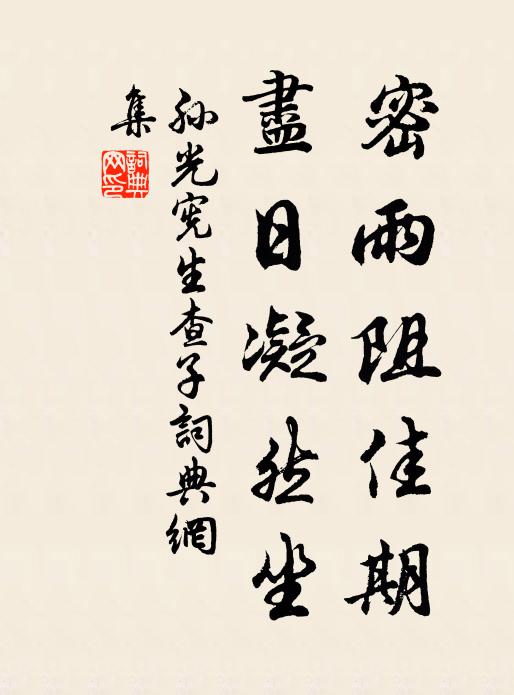 密雨阻佳期
盡日凝然坐
孫光憲生查子詞典網
集
詞典
網印